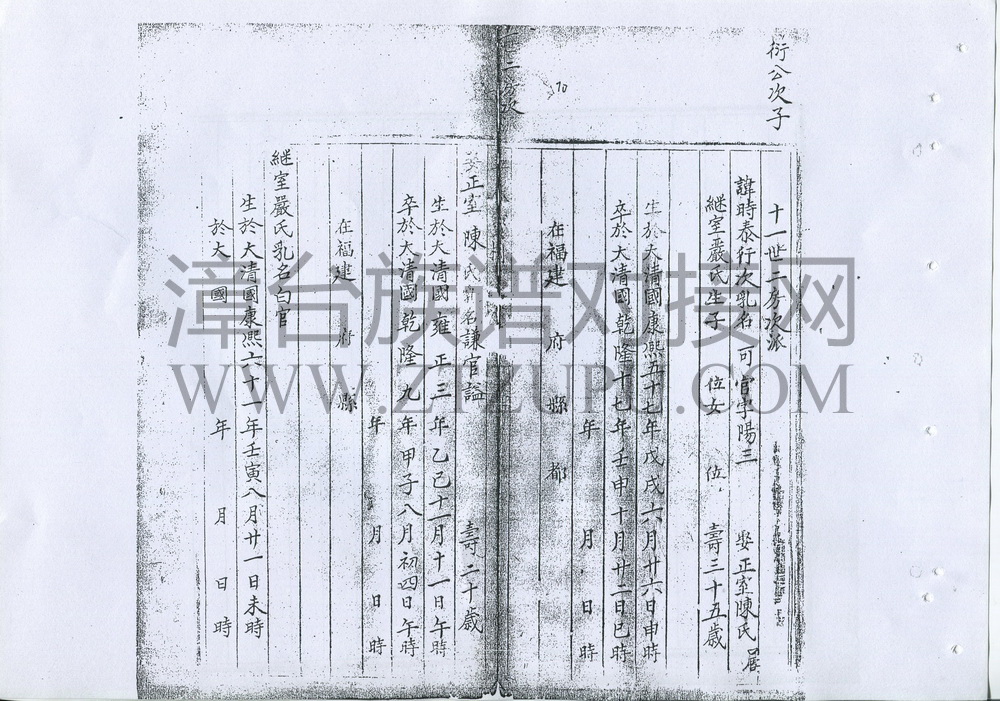 衍公次子
十一世二房次派
諱時泰行次乳名可官字陽三 娶正室陳氏
継室嚴氏生子 位女 位 壽三十五歲
生於大清國康熙五十七年戊戌六月廿六日申時
卒於大清國乾隆十七年壬申十月廿二日巳時
年 月 日 時
在福建 府 縣 都
70
娶正室陳氏乳名謙官謚 壽二十歲
生於大清國雍正三年乙巳十一月十一日午時
卒於大清國乾隆九年甲子八月初四日午時
年 月 日 時
在福建 府 縣
継室嚴氏乳名白官
生於大清國康熙六十一年壬寅八月廿一日未時
於大 國 年 月 日 時
漳台族谱对接网
WWW.ZTZUPU.COM